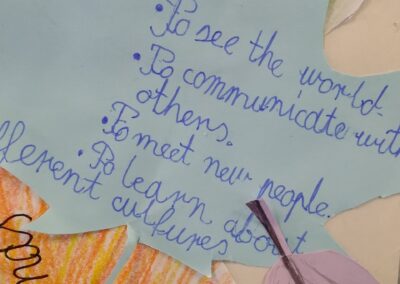 • To see the world.
• To communicate with
others.
• To meet new people.
• To learn about
fferent cultures